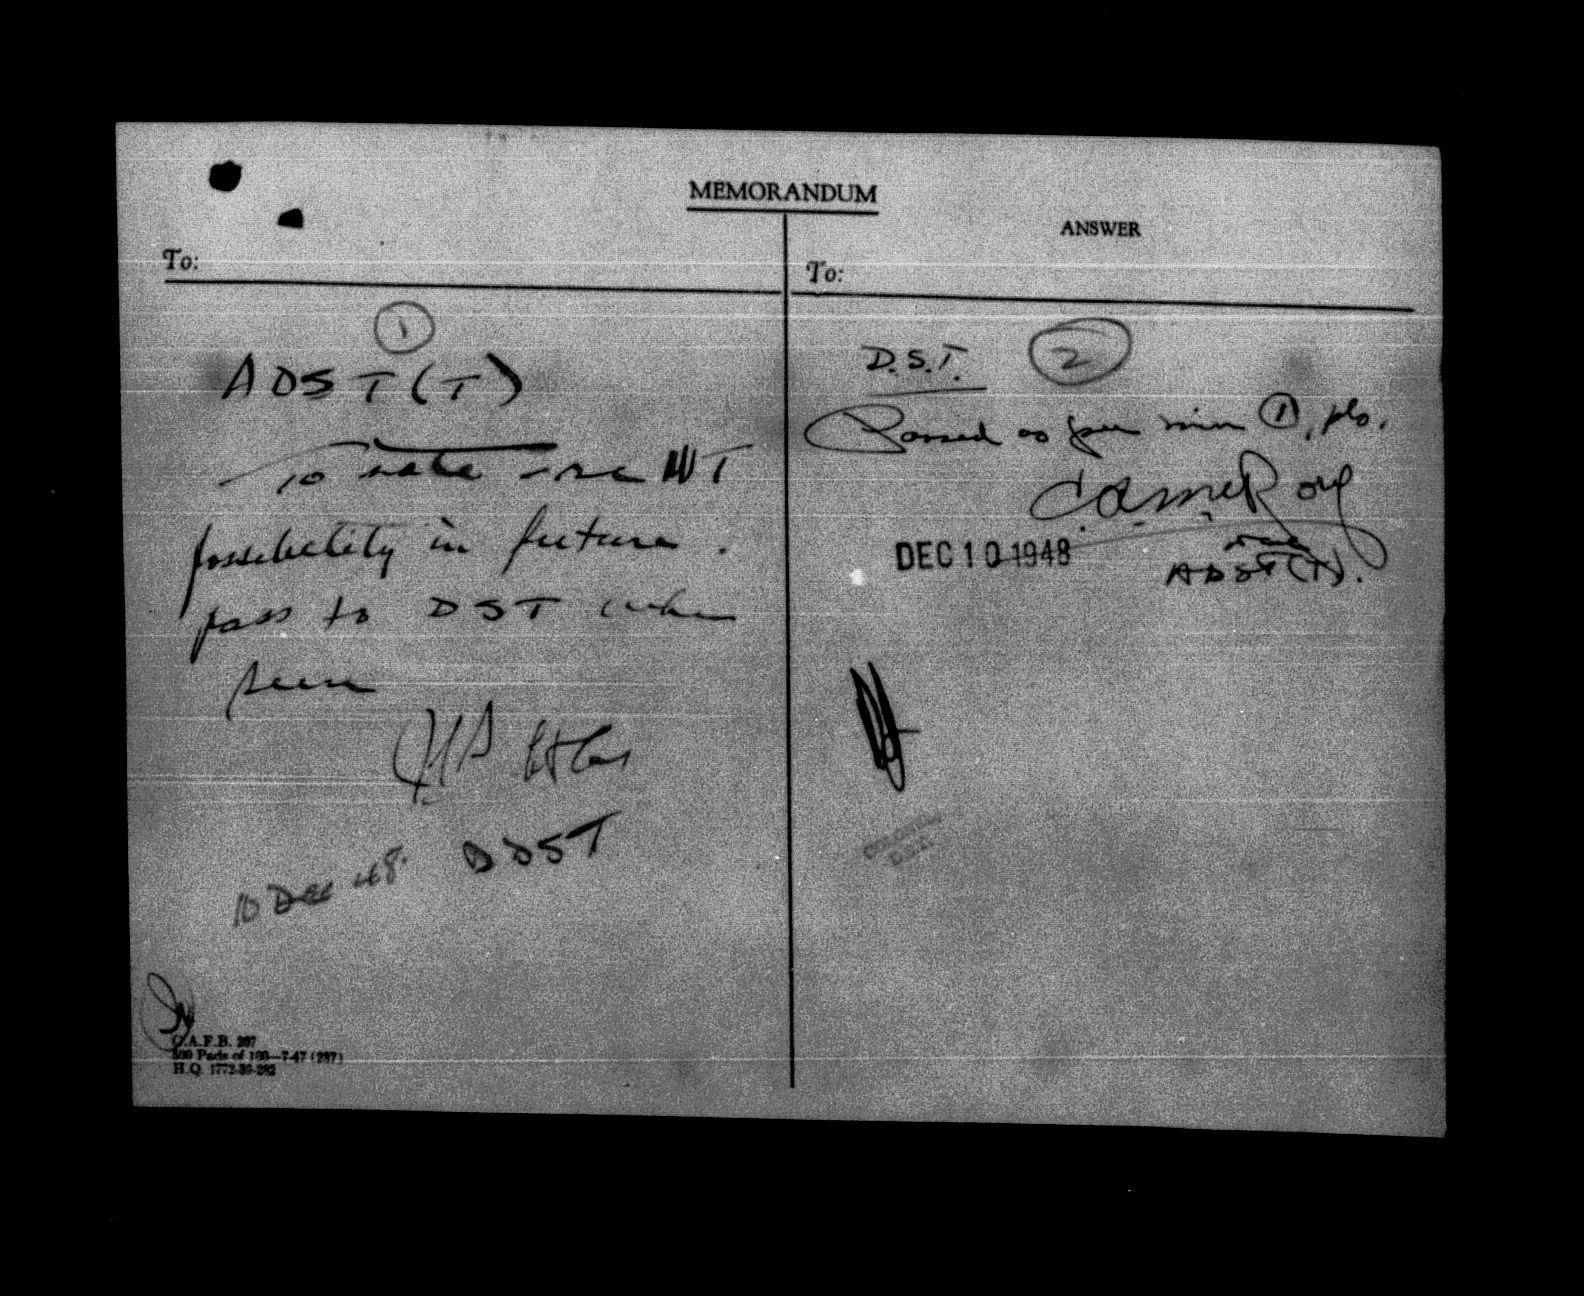 MEMORANDUM
To:
1
ADST(T)
To note -
WT
possibility in future.
pass to DST when
seen
DDST
10 Dec 48.
C.A.F.B. 207
500 Pads of 100—7-47 (287)
H.Q. 1772-39-282
ANSWER
To:
D.S.T. 2
Passed as per min 1, pls.
DEC 10 1948
ADST(T).
COLONEL
D.S.T.